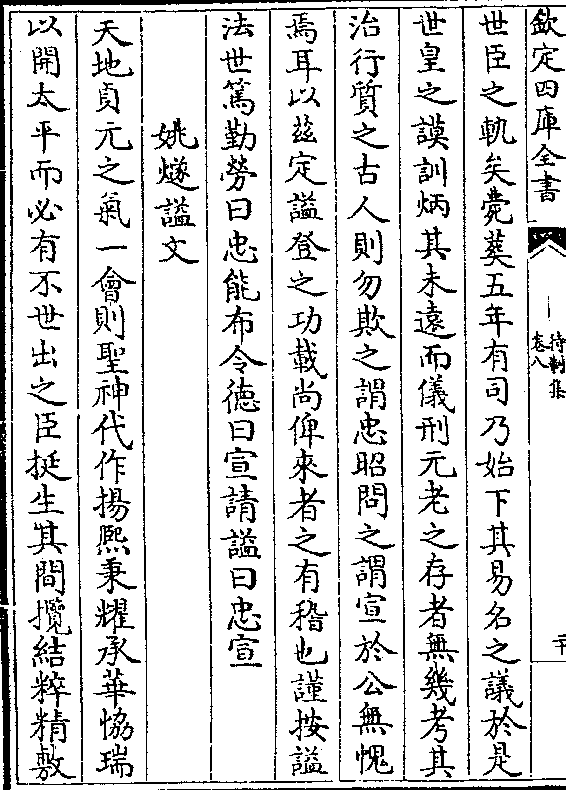 欽定四庫全書
待制集
卷八
二十
世臣之軌矣薨葬五年有司乃始下其易名之議於是
世皇之謨訓炳其未遠而儀刑元老之存者無幾考其
治行質之古人則勿欺之謂忠昭問之謂宣於公無愧
焉耳以茲定諡登之功載尚俾來者之有稽也謹按諡
法世篤勤勞曰忠能布令德曰宣請諡曰忠宣
姚燧諡文
天地貞元之氣一會則聖神代作揚熙秉耀承華恊瑞
以開太平而必有不世出之臣挺生其間攬結粹精敷